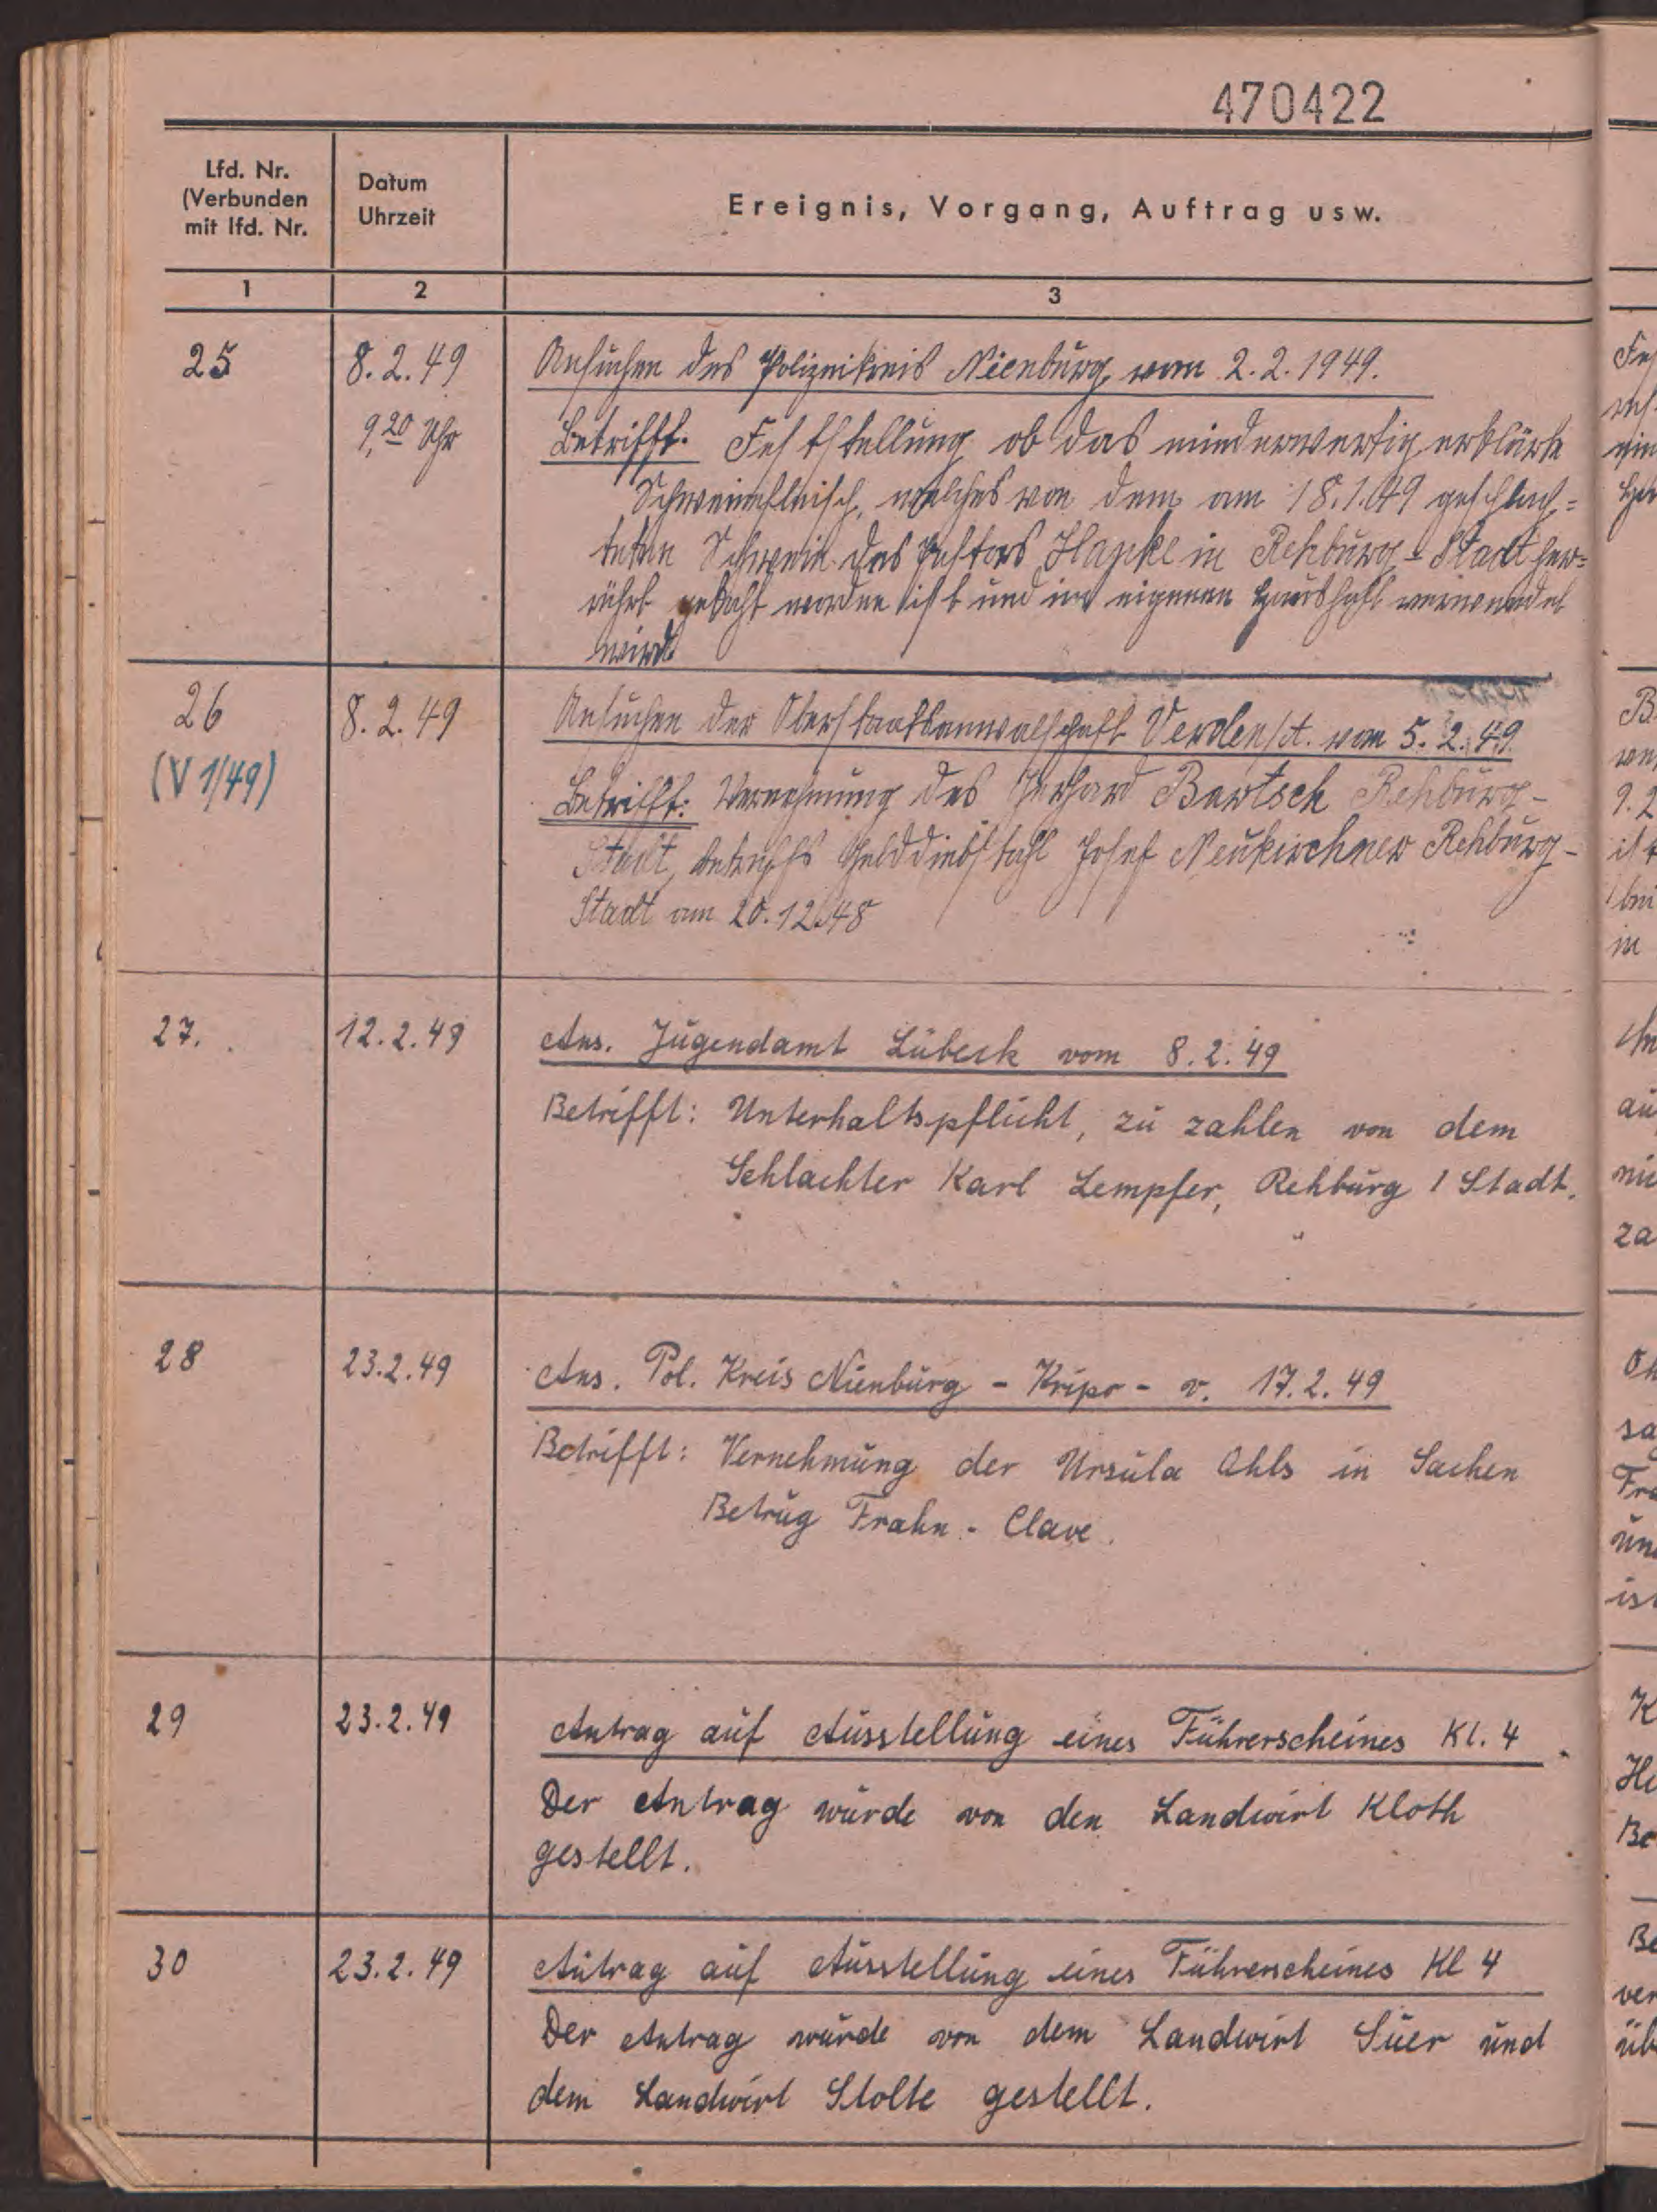 470422
Lfd. Nr.
(Verbunden
mit lfd. Nr.
Datum
Uhrzeit
Ereignis, Vorgang, Auftrag usw.
1 2 3
25 8.2.49 Ansuchen des Polizeikreis Nienburg, vom 2.2.1949.
9,20 Uhr Betrifft. Feststellung ob das minderwertig erklärte
Schweinefleisch, welches von dem am 18.1.49 geschlach=
teten Schwein des Pastors Hapke in Rehburg-Stadt her=
rührt gekocht worden ist und im eigenen Haushalt verwendet
wird.
26 8.2.49 Ansuchen der Oberstaatsanwalschaft Verden/A. vom 5.2.49
(V 1/49) Betrifft: Vernehmung des Gerhard Bartsch Rehburg-
Stadt, betreffs Gelddiebstahl Josef Neukirchner Rehburg-
Stadt am 20.12.48
27. 12.2.49 Ans. Jugendamt Lübeck vom 8.2.49
Betrifft: Unterhaltspflicht, zu zahlen von dem
Schlachter Karl Lempfer, Rehburg / Stadt.
28 23.2.49 Ans. Pol. Kreis Nienburg - Kripo - v. 17.2.49
Betrifft: Vernehmung der Ursula Ahls in Sachen
Betrug Frahn - Clave.
29 23.2.49 Antrag auf Ausstellung eines Führerscheines Kl. 4
Der Antrag wurde von den Landwirt Kloth
gestellt.
30 23.2.49 Antrag auf Ausstellung eines Führerscheines Kl 4
Der Antrag wurde von dem Landwirt Süer und
dem Landwirt Stolte gestellt.